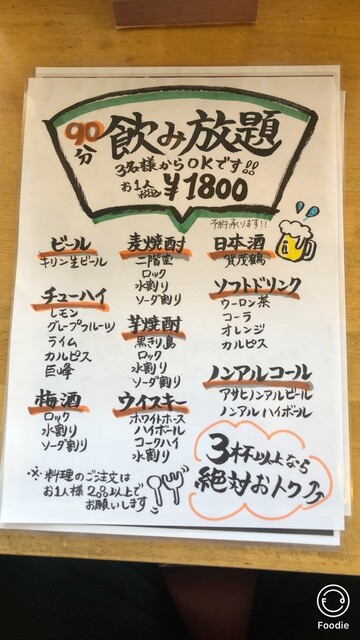 90分 飲み放題
3名様からOKです!!
お1人 税込 ¥1800
予約承ります!!
ビール
キリン生ビール
チューハイ
レモン
グレープフルーツ
ライム
カルピス
巨峰
梅酒
ロック
水割り
ソーダ割り
麦焼酎
二階堂
ロック
水割り
ソーダ割り
芋焼酎
黒きり島
ロック
水割り
ソーダ割り
ウイスキー
ホワイトホース
ハイボール
コークハイ
水割り
日本酒
賀茂鶴
ソフトドリンク
ウーロン茶
コーラ
オレンジ
カルピス
ノンアルコール
アサヒノンアルビール
ノンアルハイボール
3杯以上なら
絶対おトク♪
※料理のご注文は
お1人様2品以上で
お願いします
Foodie